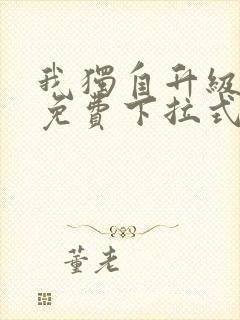 我獨自升級
免費下拉式
董老